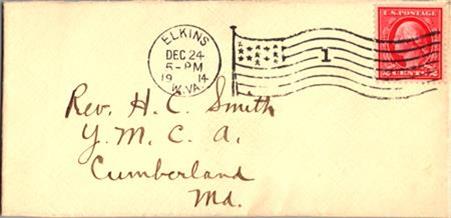 ELKINS
DEC 24
5-PM
19 14
W.VA.
1
U.S. POSTAGE
2 CENTS 2
Rev. H. C. Smith
Y. M. C. A.
Cumberland
Md.